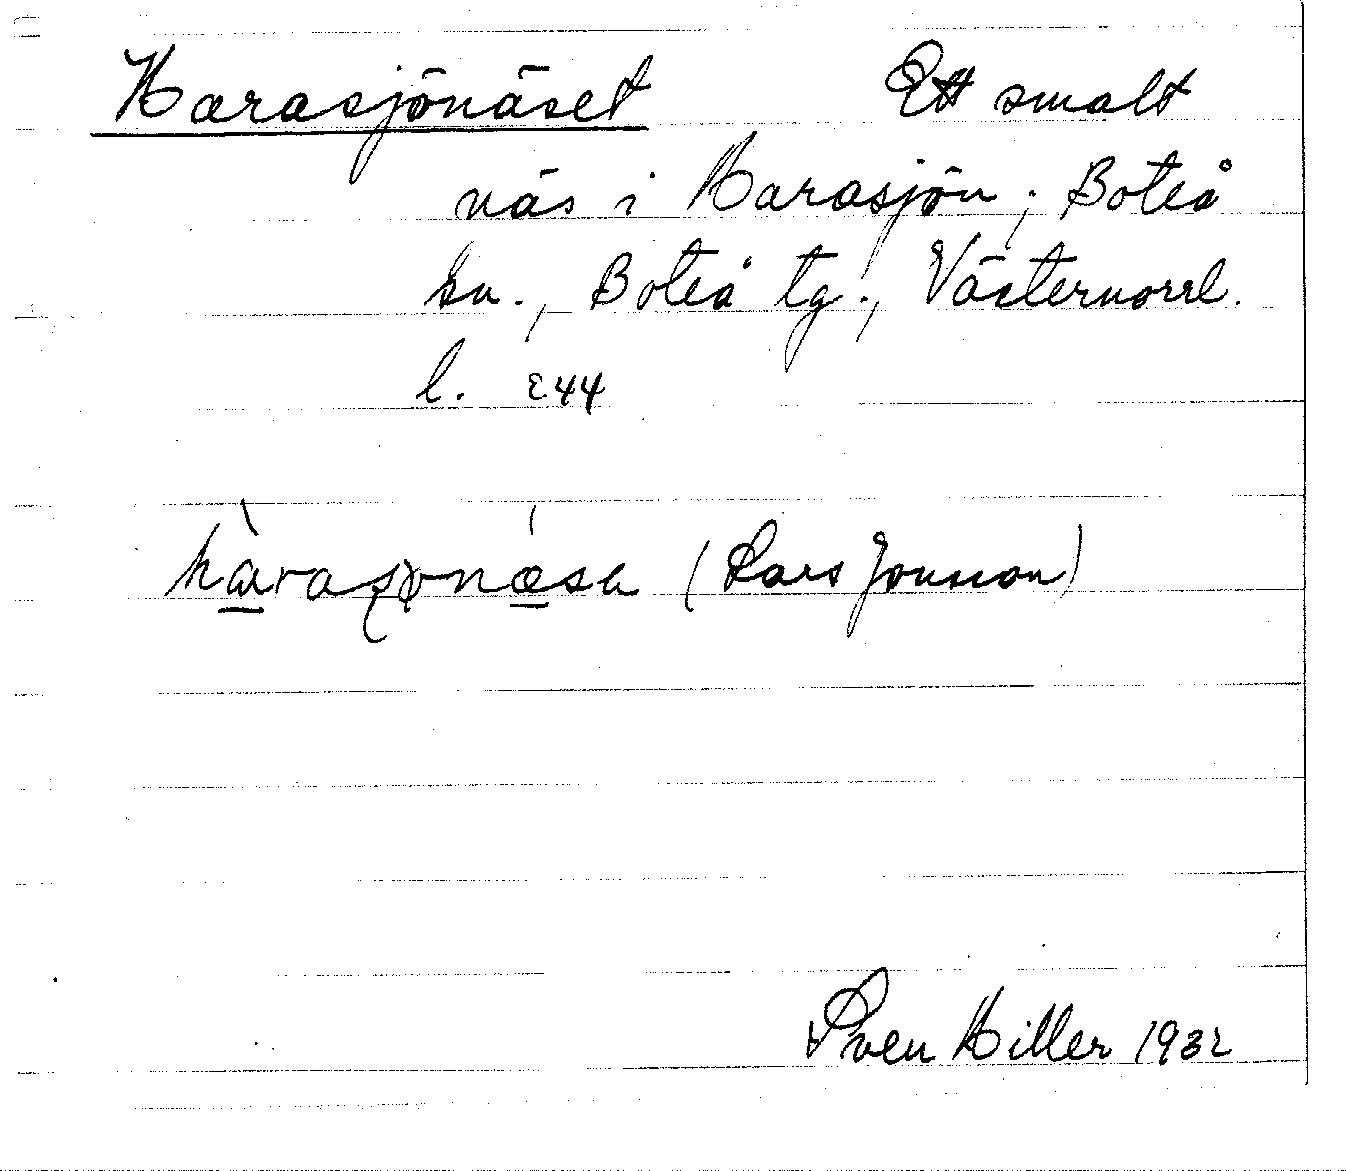 Harasjönäset Ett smalt
näs i Harasjön; Boteå
sn., Boteå tg., Västernorrl.
l. 244
(Lars Jonsson)
Sven Hiller 1932